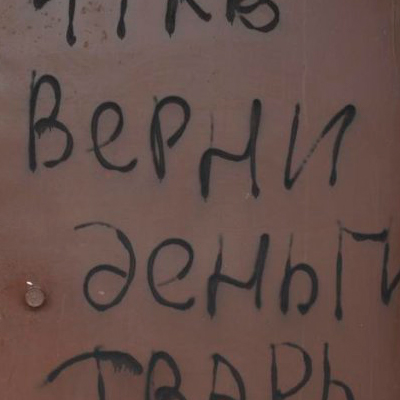 Верни
деньги
тварь